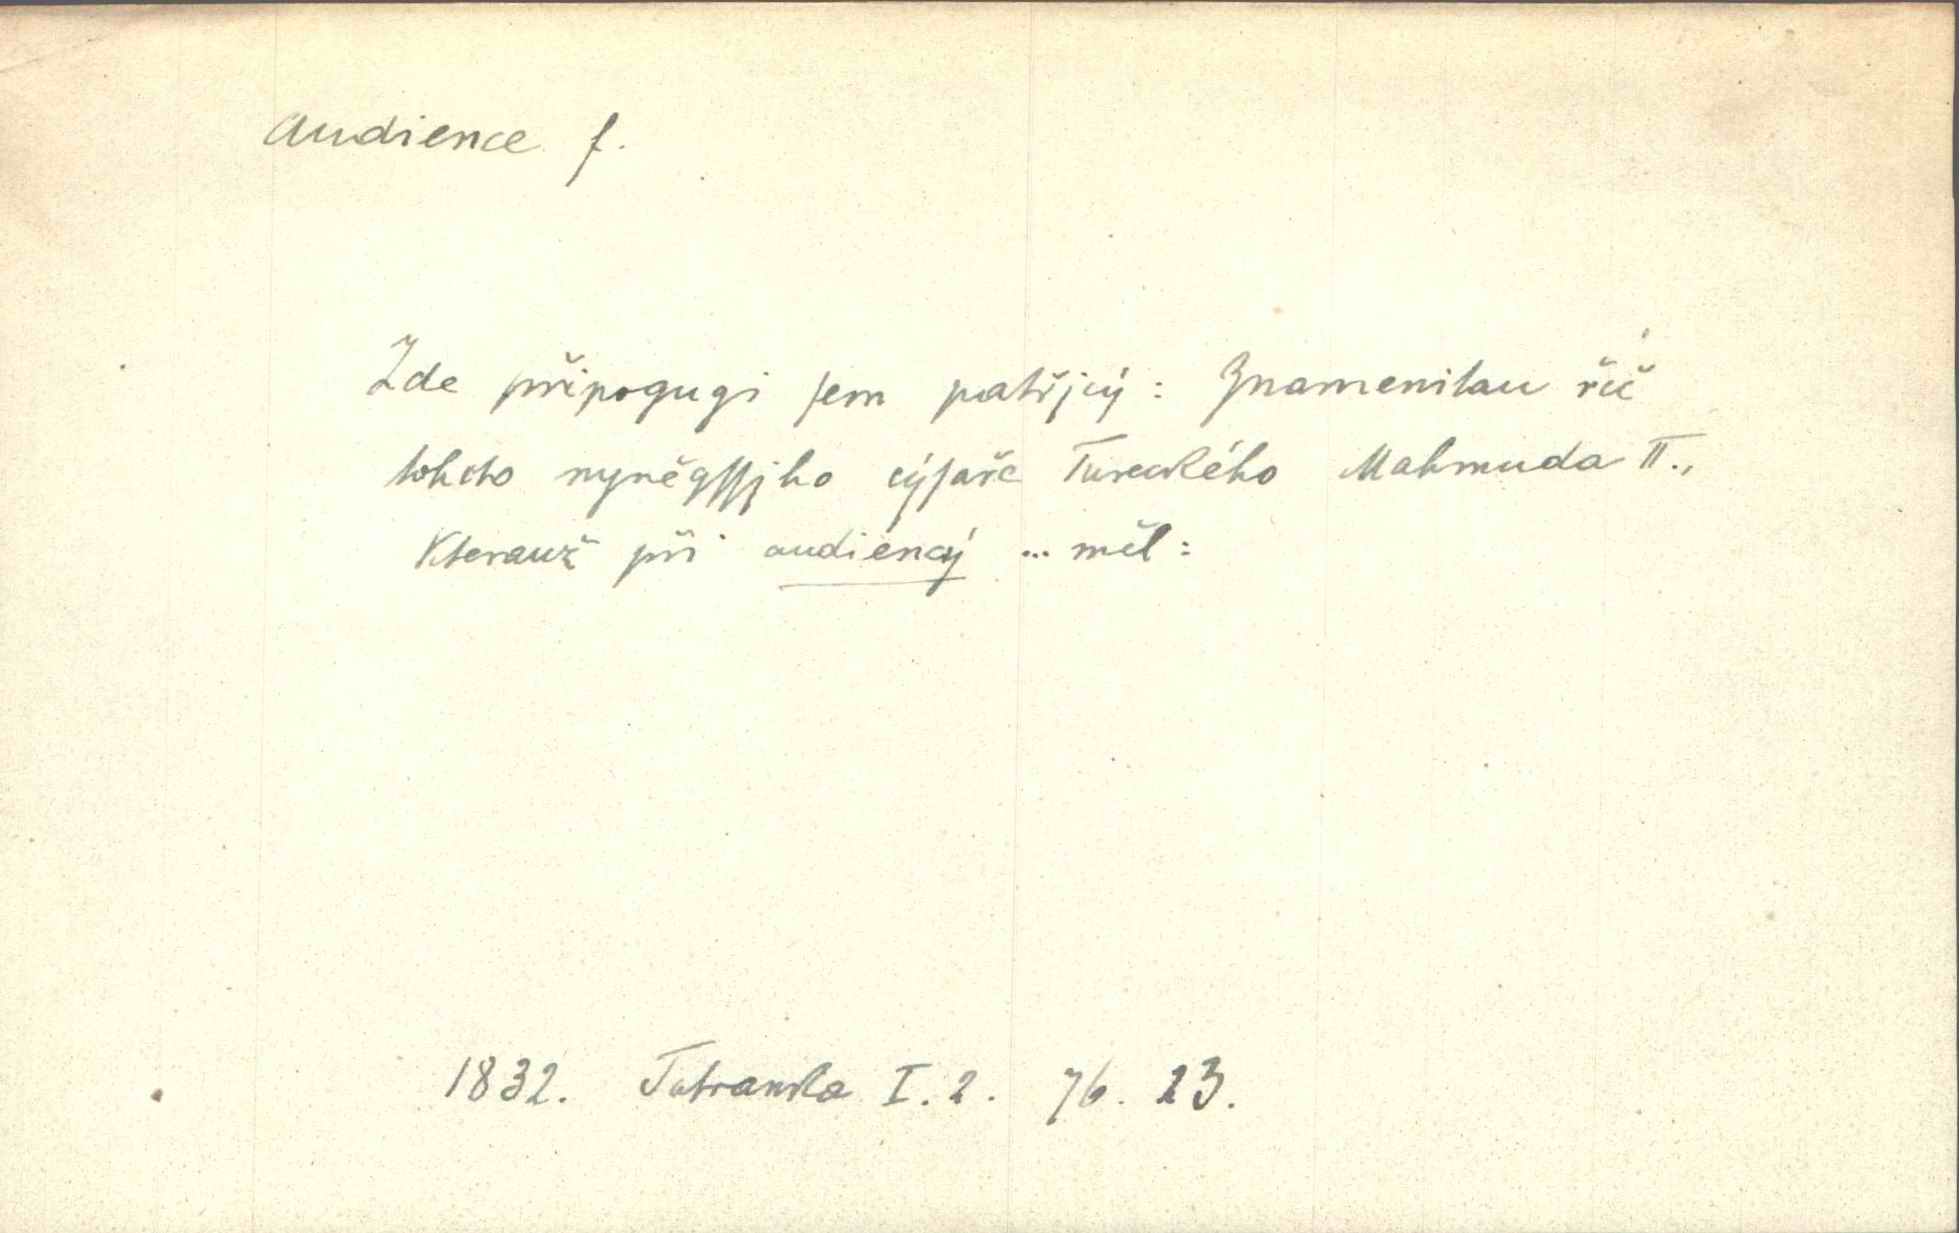 Audience f.
Zde připogugi ſem patřjcý: Znamenitau řič
tohoto nyněgſſjho cýſaře Tureckého Mahmuda II.,
kterauž při audiencý ... měl:
1832. Tatranka I. 2. 76. 23.